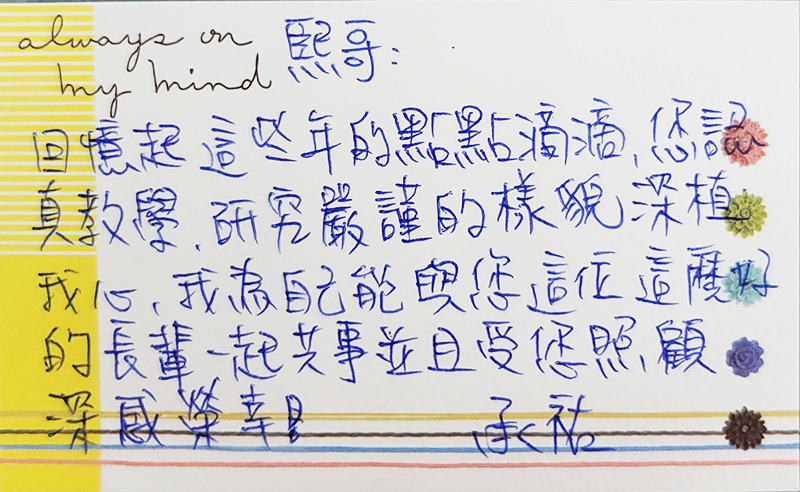 always on
my mind
熙哥:
回憶起這些年的點點滴滴,您認
真教學,研究嚴謹的樣貌深植
我心,我為自己能與您這位這麼好
的長輩一起共事並且受您照顧
深感榮幸!
承祐